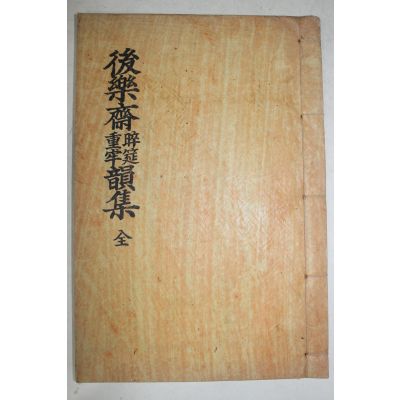 後樂齋晬筵重牢韻集 全